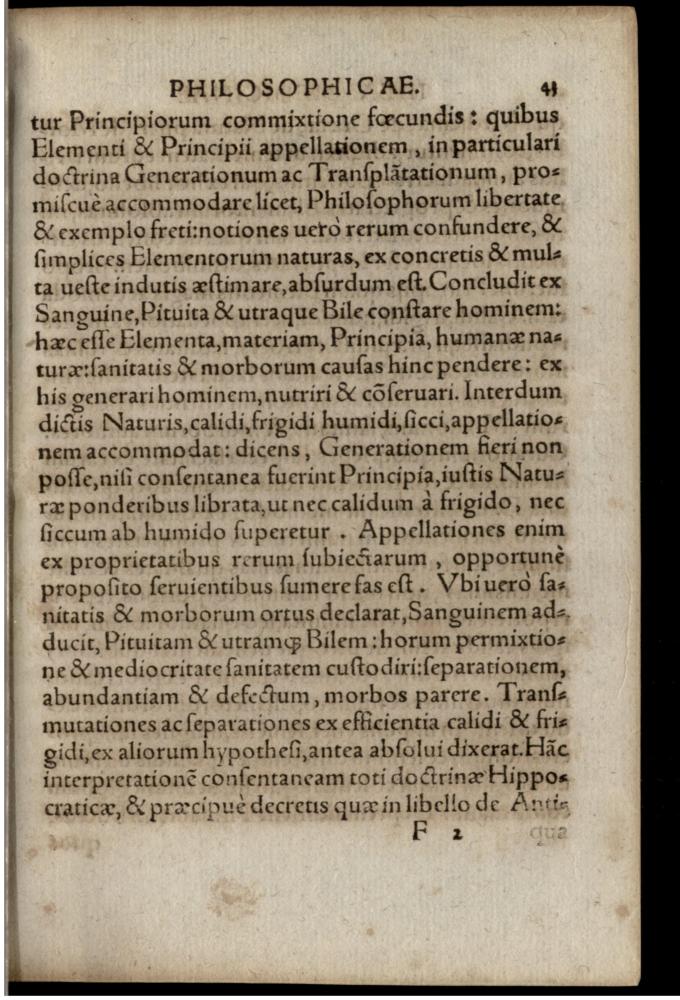 PHILOSOPHICAE. 43
tur Principiorum commixtione fœcundis : quibus
Elementi & Principii appellationem , in particulari
doctrina Generationum ac Tranſplãtationum, pro⸗
miſcuè accommodare licet, Philoſophorum libertate
& exemplo freti:notiones uerò rerum confundere, &
ſimplices Elementorum naturas, ex concretis & mul⸗
ta ueſte indutis æſtimare,abſurdum eſt. Concludit ex
Sanguine,Pituita & utraque Bile conſtare hominem:
hæc eſſe Elementa,materiam, Principia, humanæ na⸗
turæ:ſanitatis & morborum cauſas hinc pendere: ex
his generari hominem,nutriri & cõſeruari. Interdum
dictis Naturis,calidi,frigidi humidi,ſicci,appellatio⸗
nem accommodat: dicens, Generationem fieri non
poſſe,niſi conſentanea fuerint Principia,iuſtis Natu⸗
ræ ponderibus librata,ut nec calidum à frigido, nec
ſiccum ab humido ſuperetur . Appellationes enim
ex proprietatibus rerum ſubiectarum , opportunè
propoſito ſeruientibus ſumere fas eſt . Vbi uerò ſa⸗
nitatis & morborum ortus declarat,Sanguinem ad⸗
ducit, Pituitam & utramq; Bilem : horum permixtio⸗
ne & mediocritate ſanitatem cuſtodiri:ſeparationem,
abundantiam & defectum, morbos parere. Tranſ⸗
mutationes ac ſeparationes ex efficientia calidi & fri⸗
gidi,ex aliorum hypotheſi,antea abſolui dixerat.Hãc
interpretationẽ conſentaneam toti doctrinæ Hippo⸗
craticæ, & præcipuè decretis quæ in libello de Anti⸗
F 2 qua